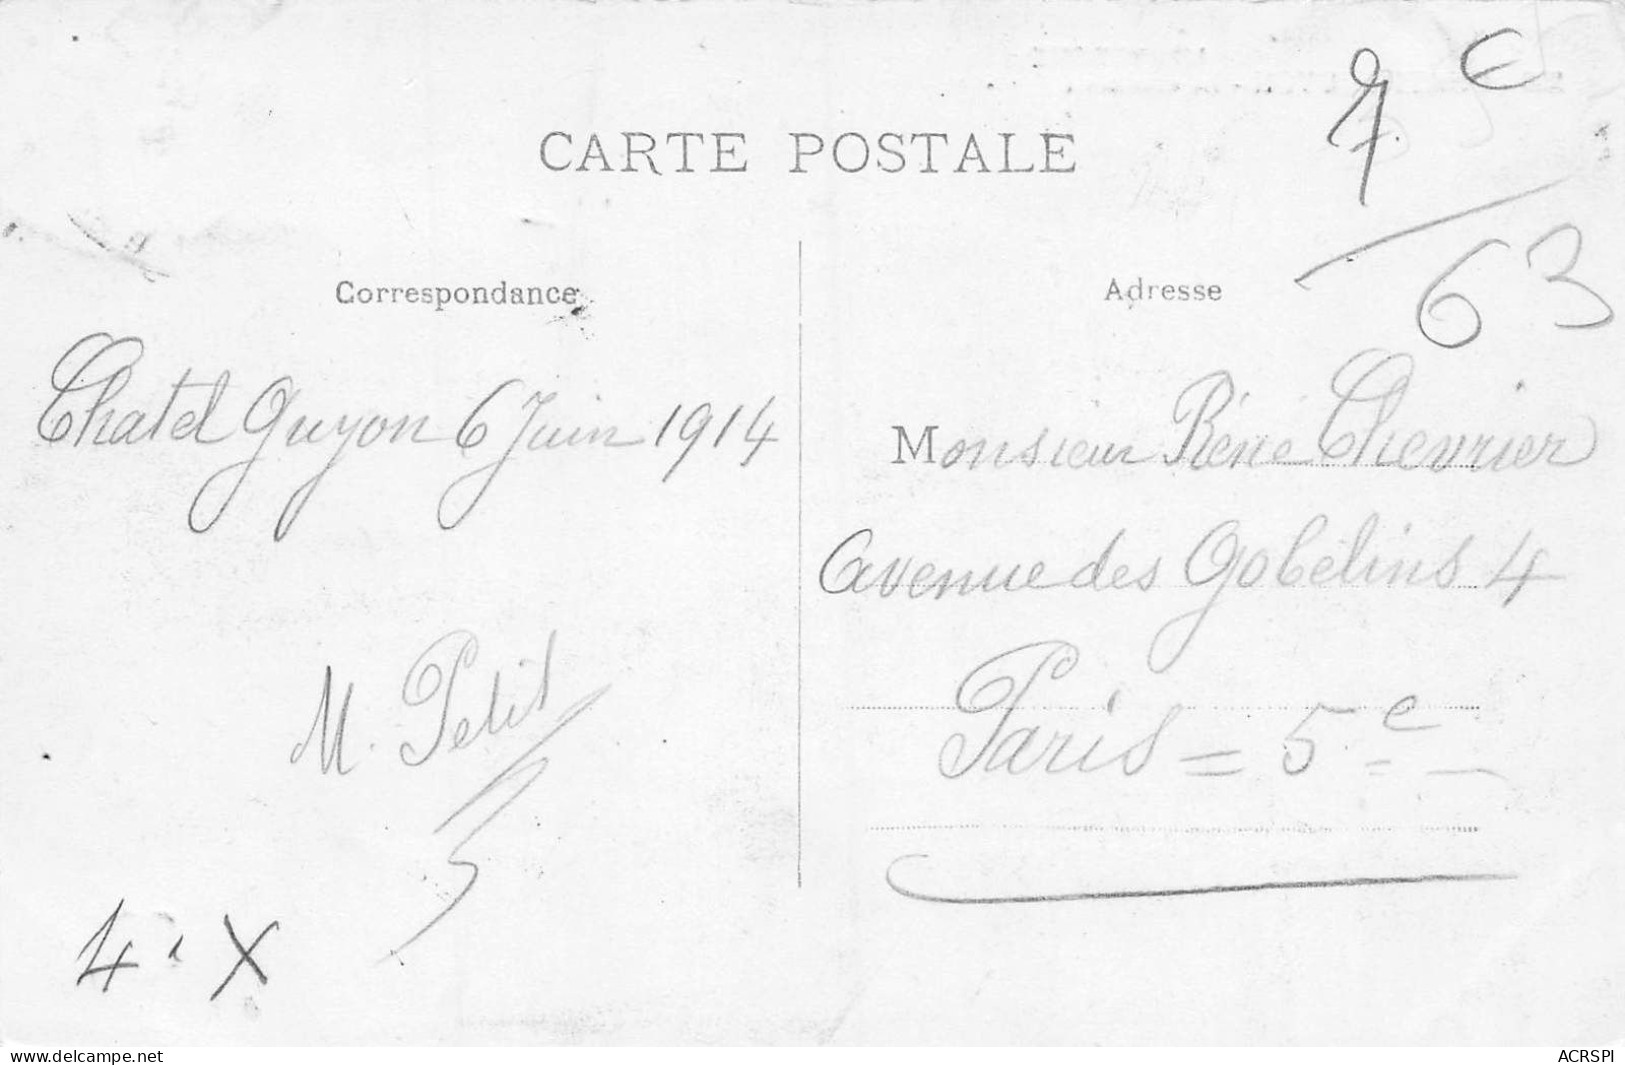 7 €
CARTE POSTALE
63
Correspondance
Chatel Guyon 6 Juin 1914
M. Petit
4 X
Adresse
Monsieur Réné Chevrier
Avenue des Gobelins 4
Paris = 5e
www.delcampe.net
ACRSPI